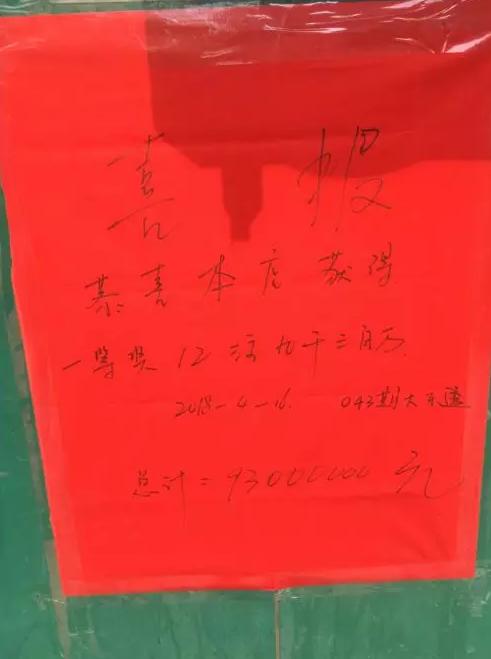 喜报
恭喜本店获得
一等奖12注九千三百万.
2018-4-16. 043期大乐透
总计=93000000元